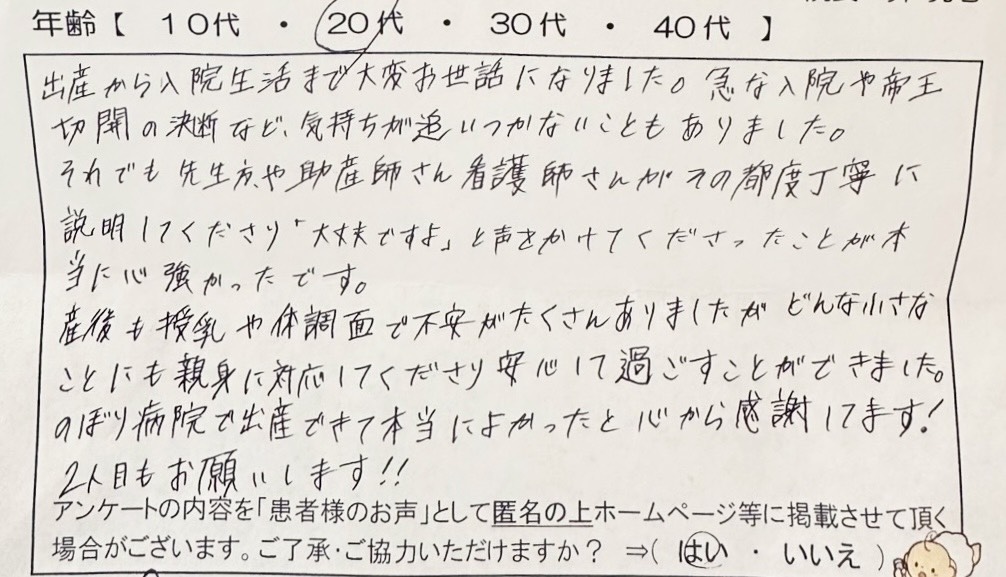 年齢【 10代 ・ 20代 ・ 30代 ・ 40代 】
出産から入院生活まで大変お世話になりました。急な入院や帝王
切開の決断など、気持ちが追いつかないこともありました。
それでも先生方や助産師さん看護師さんがその都度丁寧に
説明してくださり「大丈夫ですよ」と声をかけてくださったことが本
当に心強かったです。
産後も授乳や体調面で不安がたくさんありましたがどんな小さな
ことにも親身に対応してくださり安心して過ごすことができました。
のぼり病院で出産できて本当によかったと心から感謝してます!
2人目もお願いします!!
アンケートの内容を「患者様のお声」として匿名の上ホームページ等に掲載させて頂く
場合がございます。ご了承・ご協力いただけますか? ⇒( はい ・ いいえ )